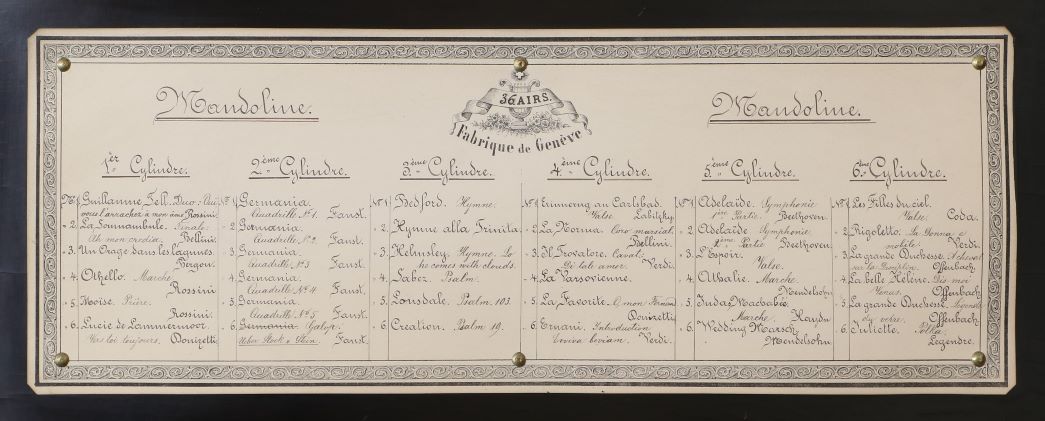 36 AIRS.
Fabrique de Genève
Mandoline.
Mandoline.
1er Cylindre.
No 1 Guillaume Tell. Duo: Oui
vous l'arrachez à mon âme Rossini.
" 2. La Somnambule. Finale.
Ah mon credia. Bellini.
" 3. Un Orage dans les
Bergon.
" 4. Othello. Marche.
Rossini
" 5. Moise. Prière.
Rossini.
" 6. Lucie de Lammermoor.
Vers toi toujours. Donizetti
2ème Cylindre.
No 1 Germania.
Quadrille No 1. Faust.
" 2. Germania.
Quadrille No 2. Faust.
" 3. Germania.
Quadrille No 3 Faust.
" 4. Germania.
Quadrille No 4 Faust.
" 5. Germania.
Quadrille No 5. Faust.
" 6. Germania Galop.
Ueber Stock & Stein. Faust.
3ème Cylindre.
No 1 Bedford. Hymne.
" 2. Hymne alla Trinita.
" 3. Helmsley. Hymne. Lo
he comes with clouds.
" 4. Saber. Psalm.
" 5. Lonsdale. Psalm 103.
" 6. Creation. Psalm 19.
4ème Cylindre.
No 1 Erinnerung an Carlsbad.
Valse Labitzky.
" 2. La Norma. Coro marzial.
Bellini.
" 3. Il Trovatore. Cavat.
Di tale amor. Verdi.
" 4. La Varsovienne.
" 5. La Favorite. O mon Fernand
Donizetti
" 6. Ernani. Introduction
Evviva beviam. Verdi.
5ème Cylindre.
No 1 Adelaïde. Symphonie
1ère Partie. Beethoven.
" 2. Adelaïde Symphonie
2ème Partie Beethoven.
" 3. L'Espoir.
Valse.
" 4. Athalie. Marche.
Mendelsohn
" 5. Judas Machabée.
Marche. Haydn
" 6. Wedding Marsch.
Mendelsohn
6me Cylindre.
No 1 Les Filles du ciel.
Valse. Coda.
" 2. Rigoletto. La Donna è
mobile. Verdi.
" 3. La grande Duchesse.
Offenbach.
" 4. La belle Hélène. Dis moi
Vénus Offenbach
" 5. La grande Duchesse. Légende
du verre. Offenbach.
" 6. Juliette. Polka.
Legendre.